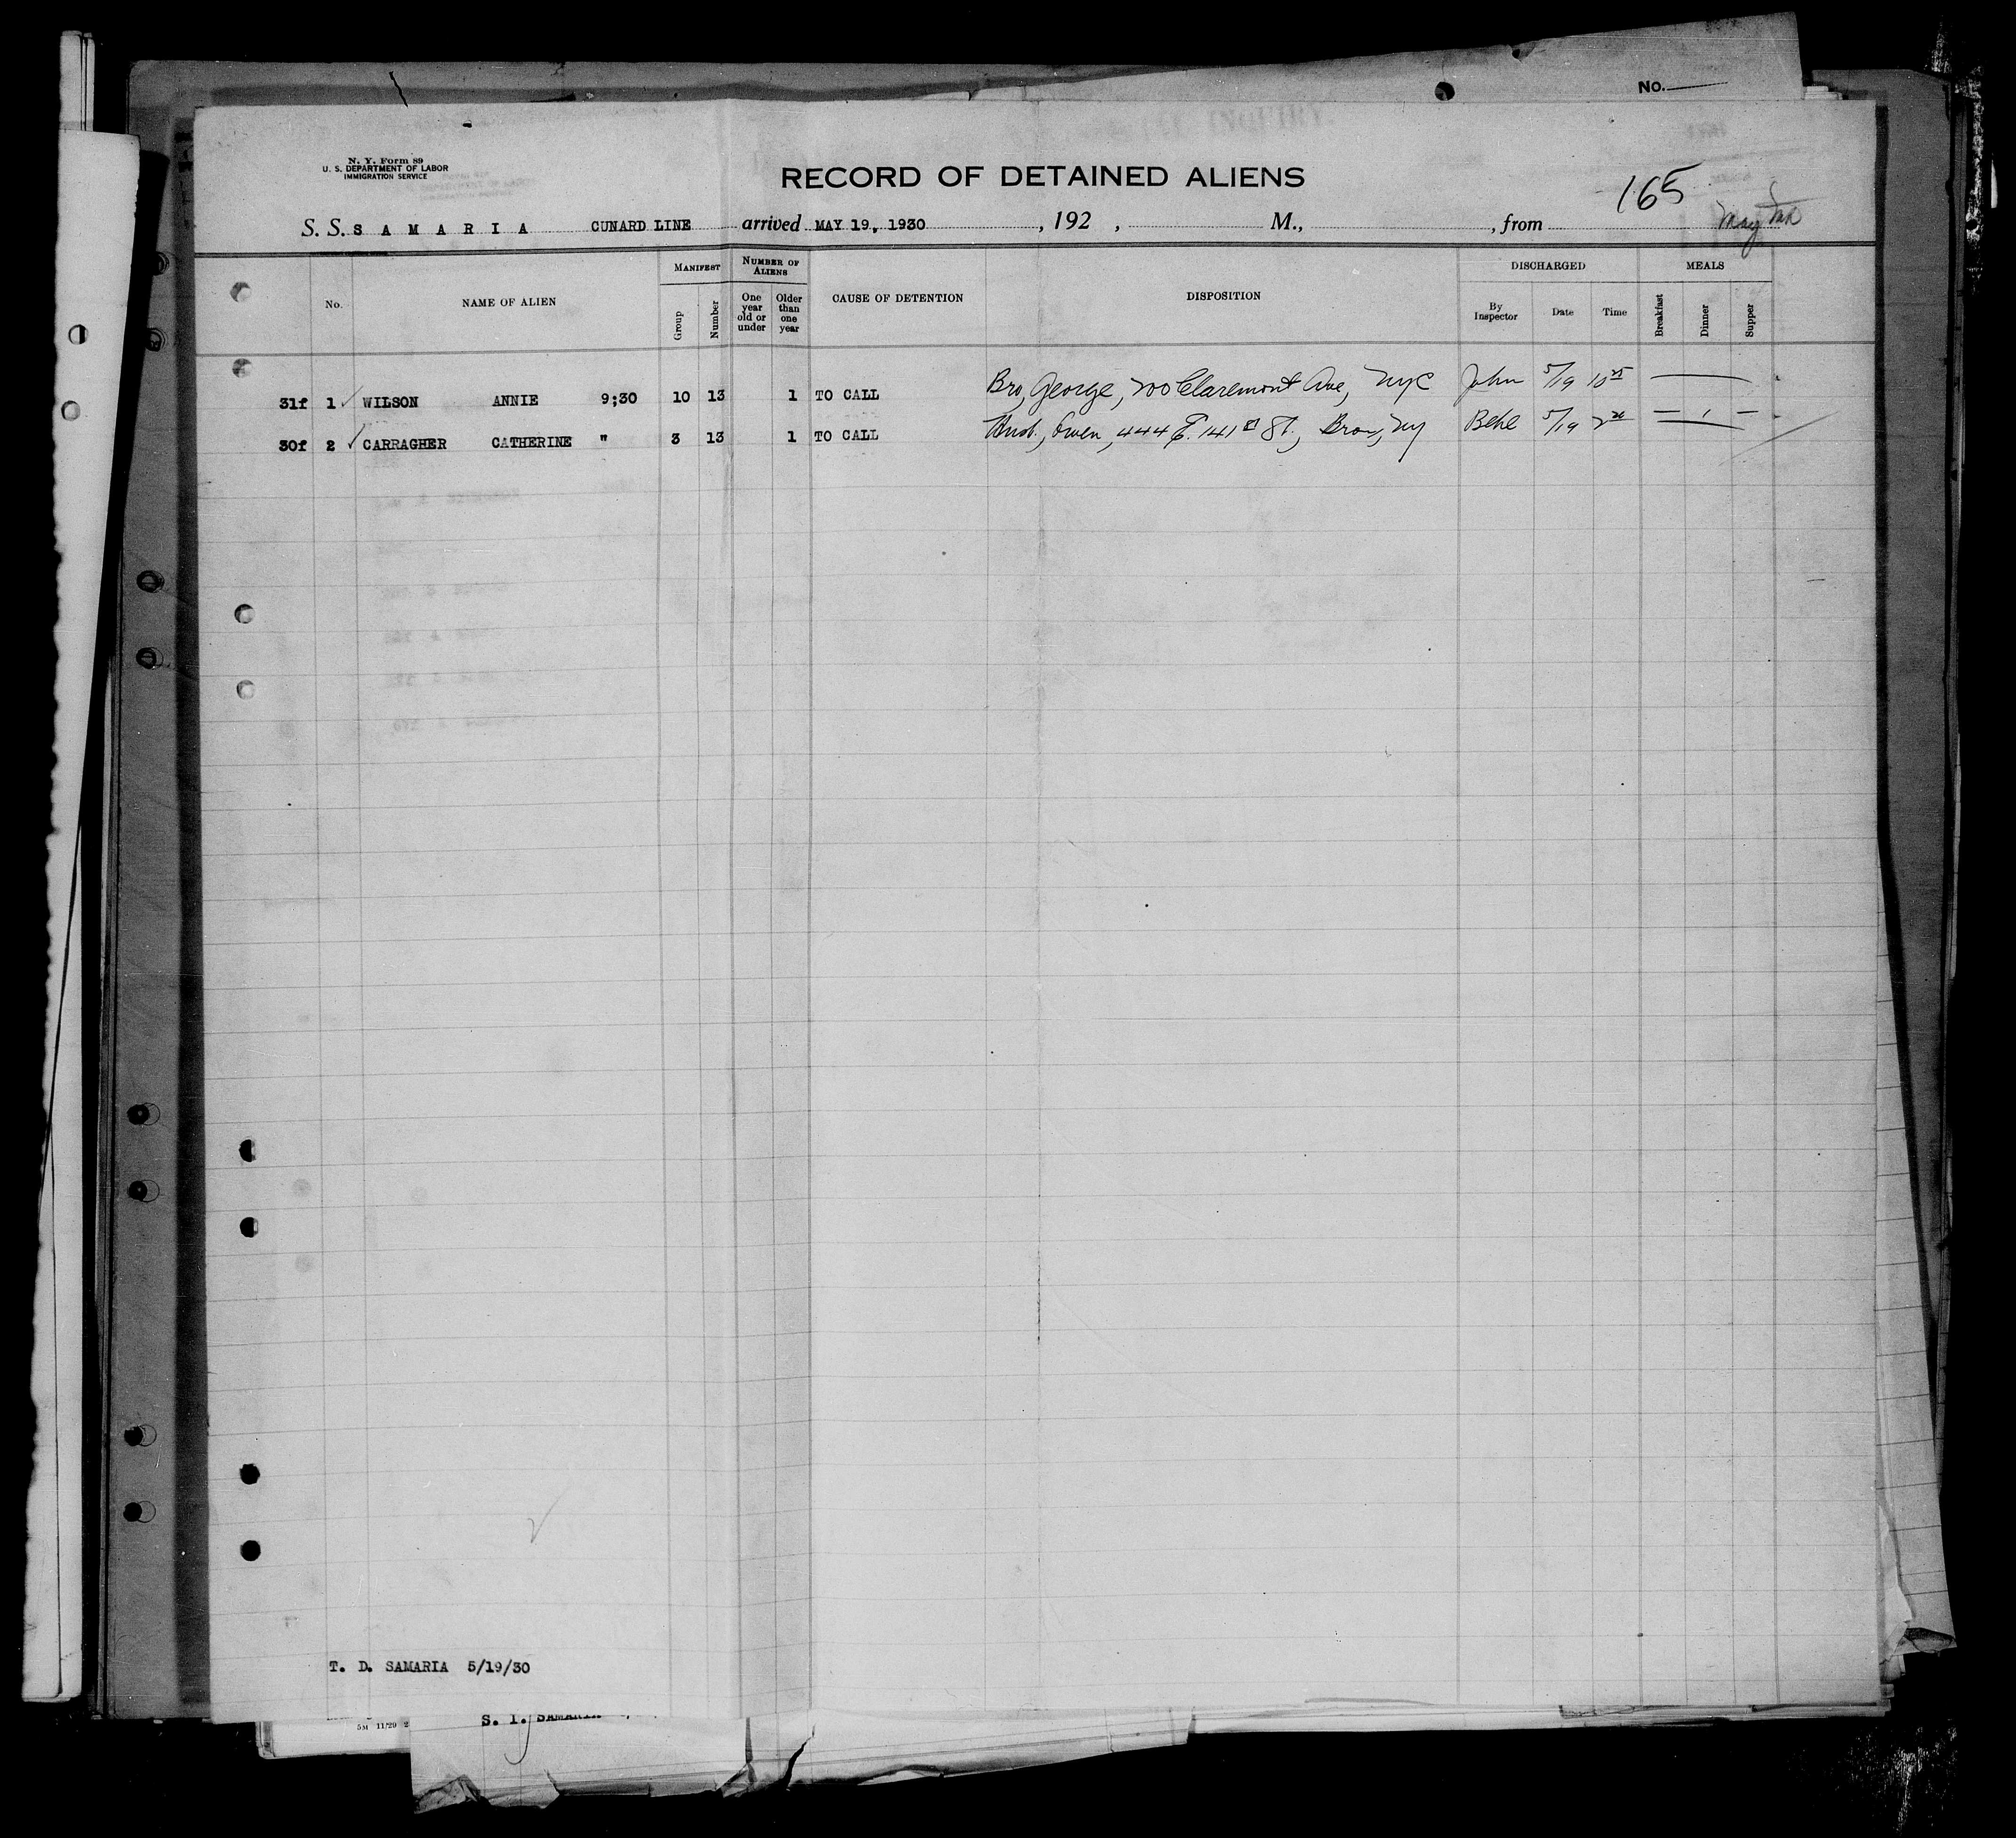 No.
N. Y. Form 89
U. S. DEPARTMENT OF LABOR
IMMIGRATION SERVICE
RECORD OF DETAINED ALIENS
165
S. S. S A M A R I A CUNARD LINE arrived MAY 19, 1930 , 192 , M., , from
No. NAME OF ALIEN MANIFEST Group Number NUMBER OF ALIENS One year old or under Older than one year CAUSE OF DETENTION DISPOSITION DISCHARGED By Inspector Date Time MEALS Breakfast Dinner Supper
31f 1 ✓ WILSON ANNIE 9;30 10 13 1 TO CALL Bro, George, 200 Claremont Ave, NYC John 5/19 10 25 —
30f 2 ✓ CARRAGHER CATHERINE " 3 13 1 TO CALL Husb., Owen, 444 E. 141st St., Bronx, NY 5/19 — 1 —
T. D. SAMARIA 5/19/30
5M 11/29 2
S. I. SAMARIA